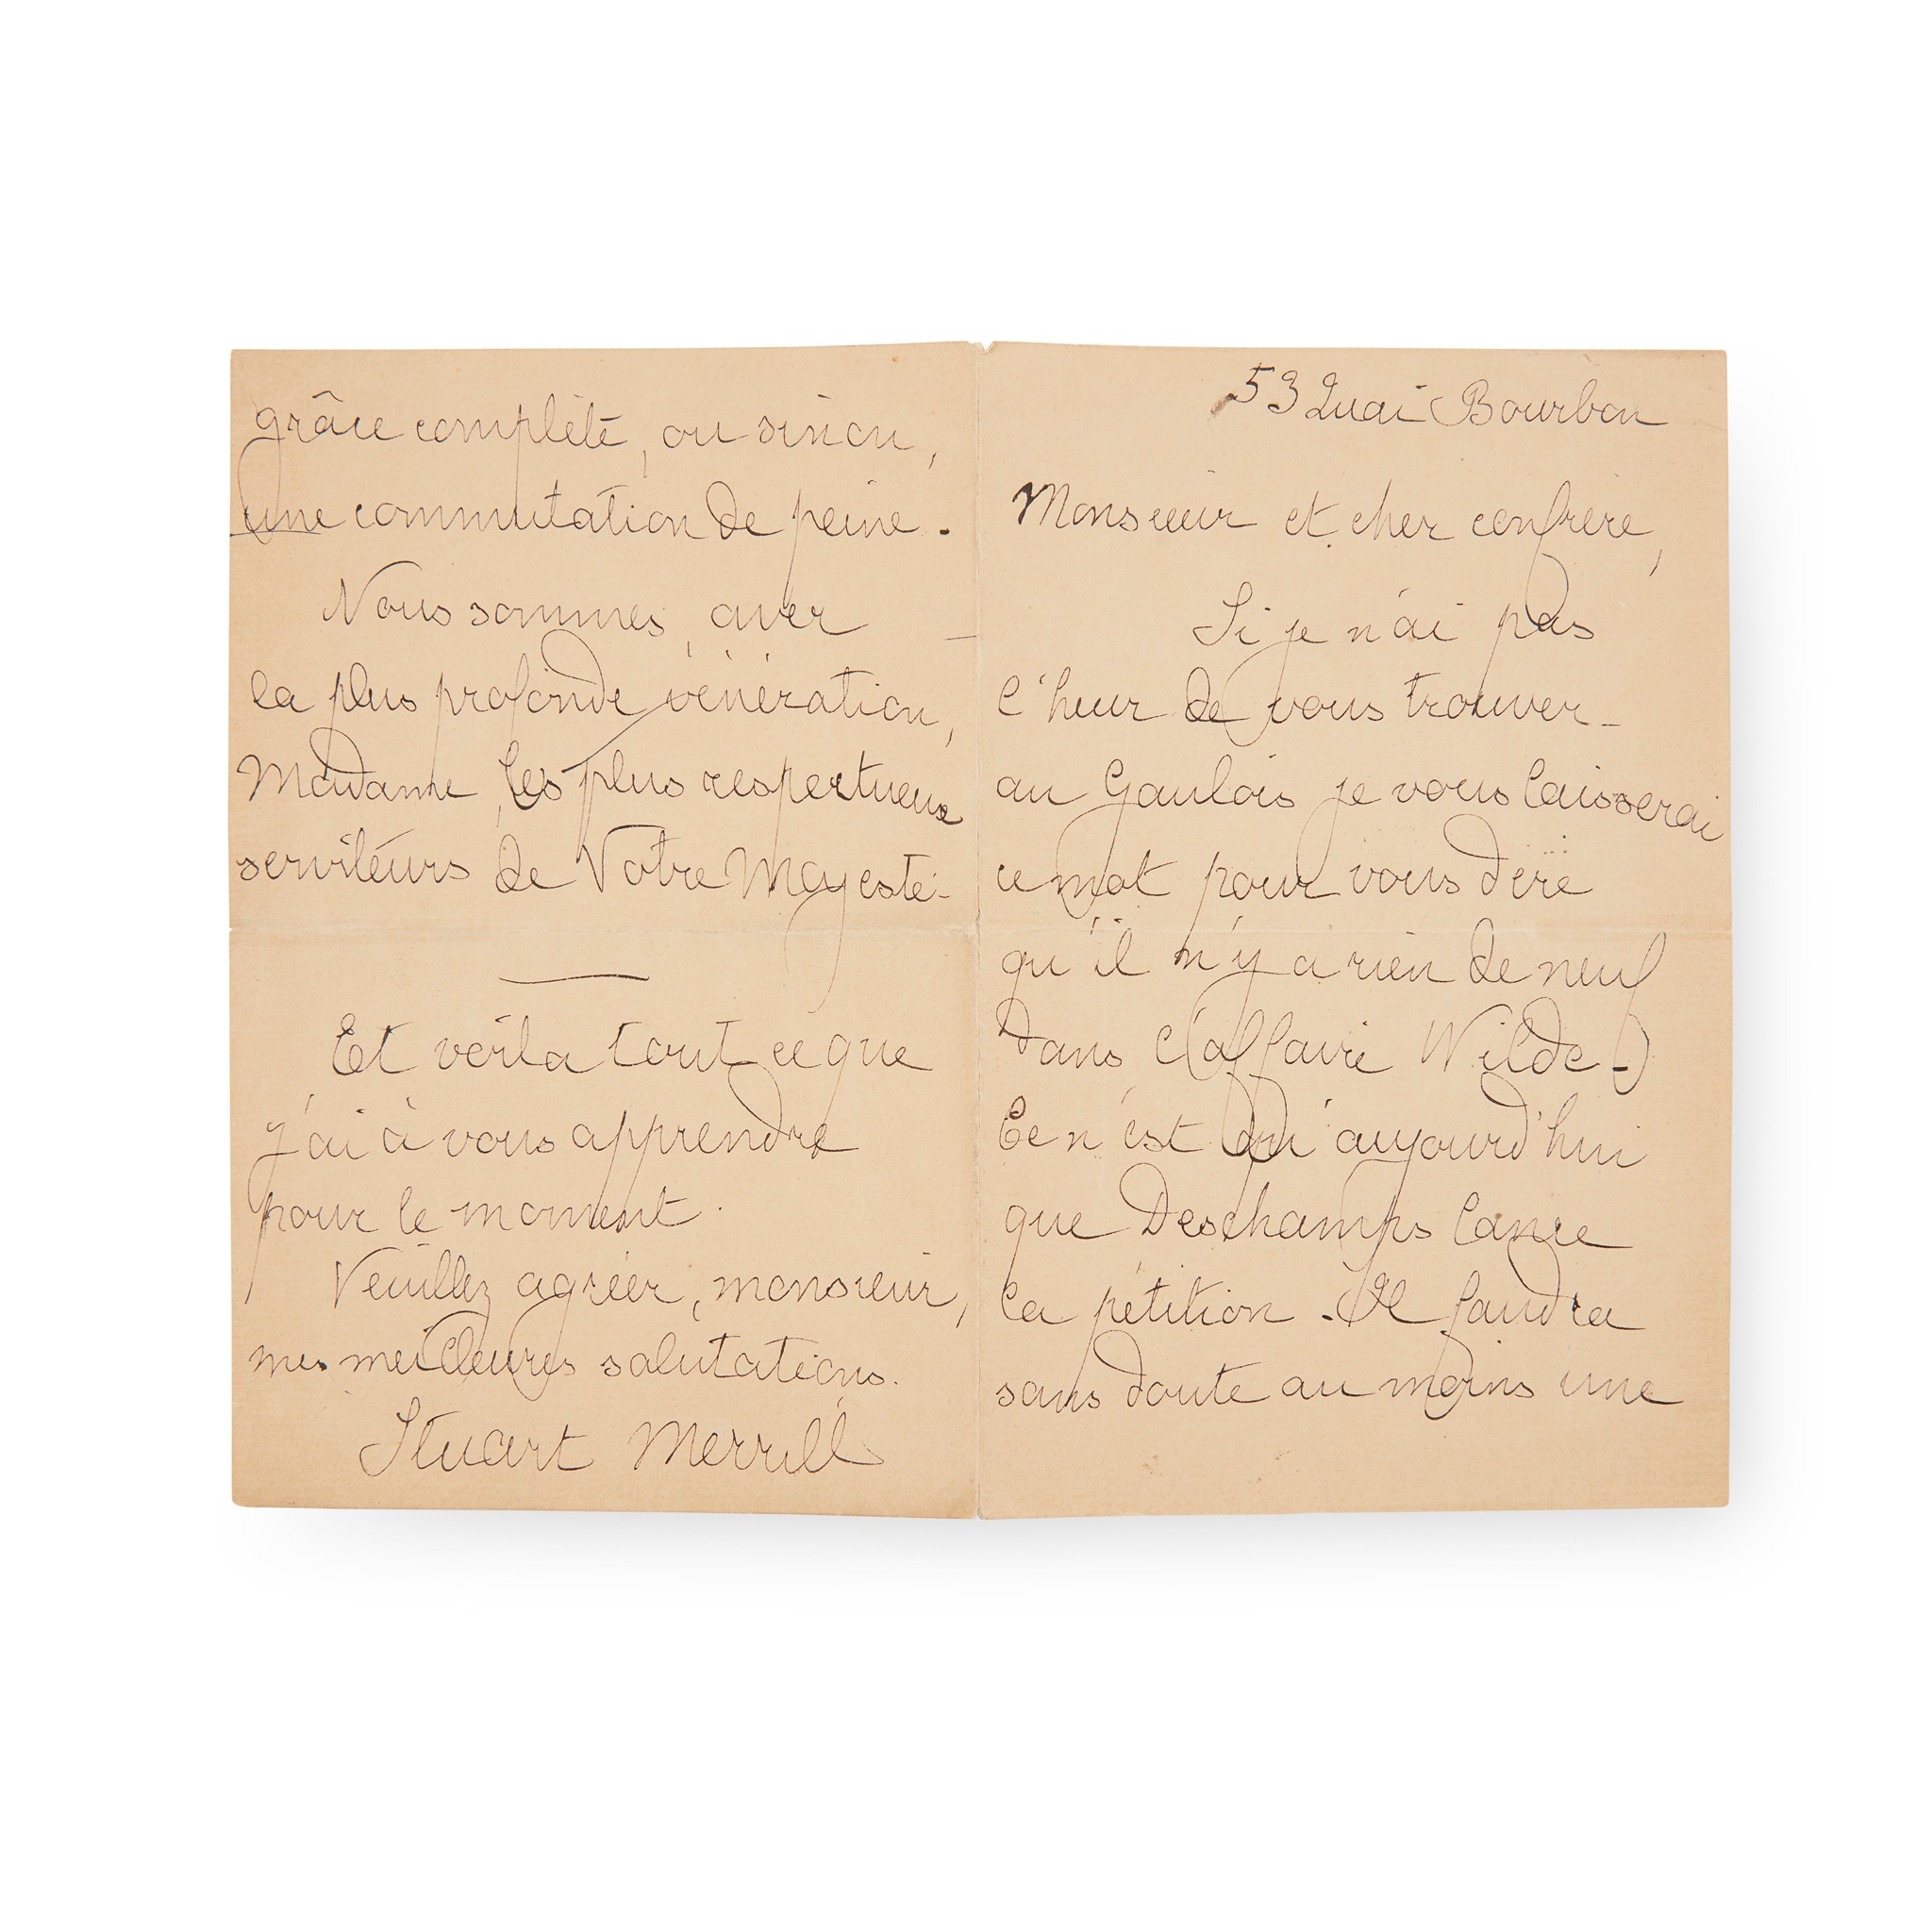 53 Quai Bourbon
Monsieur et cher confrère,
Si je n'ai pas
l'heur de vous trouver
au Gaulois je vous laisserai
ce mot pour vous dire
qu'il n'y a rien de neuf
dans l'affaire Wilde.
Ce n'est qu'aujourd'hui
que Deschamps lance
la pétition. Il faudra
sans doute au moins une
grâce complète, ou sinon,
une commutation de peine.
Nous sommes, avec
la plus profonde vénération,
Madame, les plus respectueux
serviteurs de Votre Majesté.
Et voilà tout ce que
j'ai à vous apprendre
pour le moment.
Veuillez agréer, monsieur,
mes meilleures salutations.
Stuart Merrill